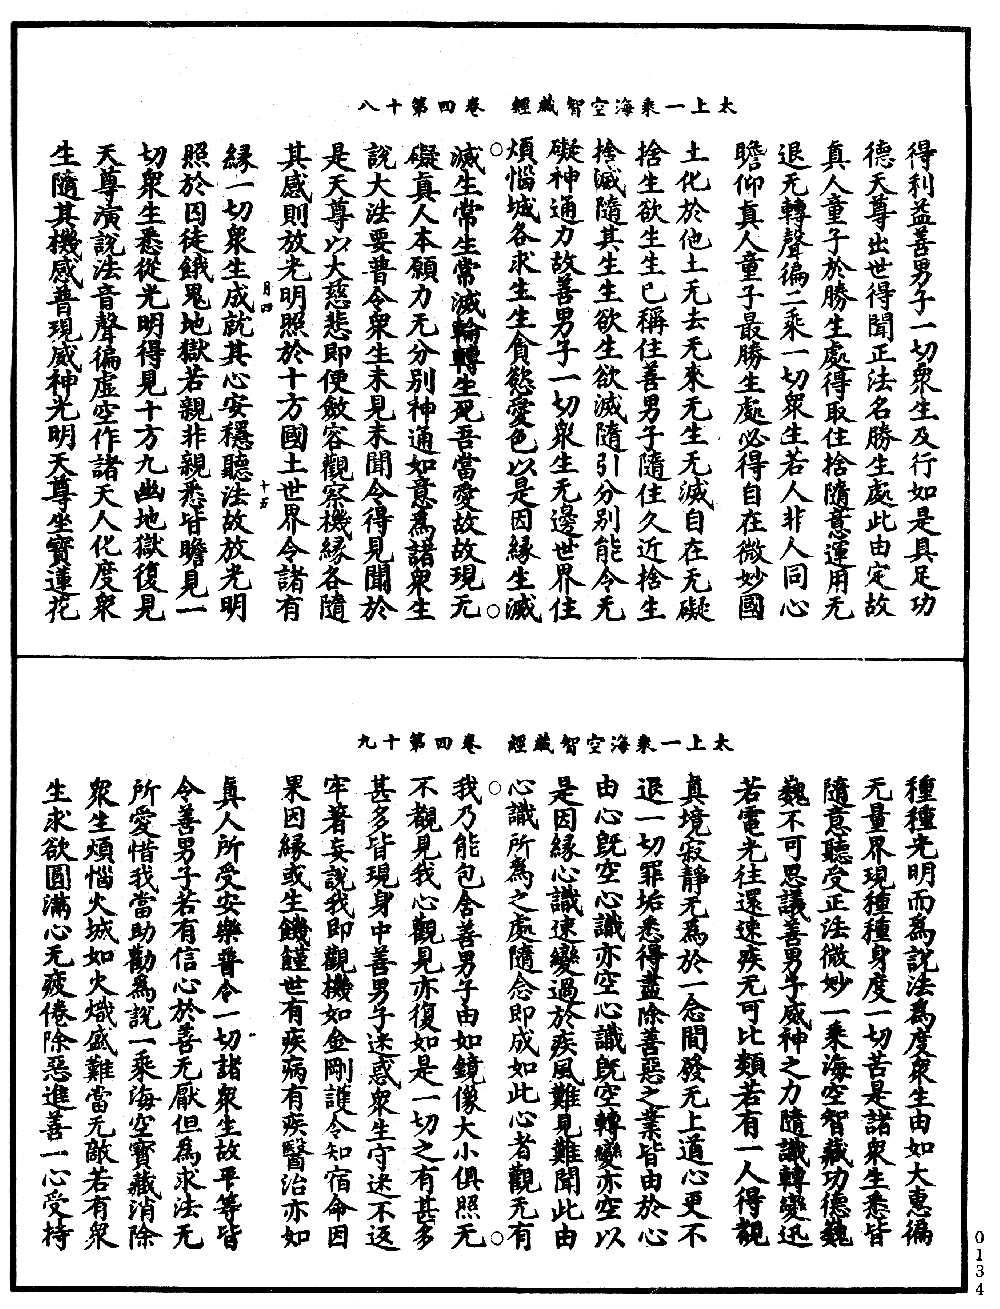 太上一乘海空智藏經　卷四第十八
得利益善男子一切衆生及行如是具足功
德天尊出世得聞正法名勝生處此由定故
真人童子於勝生處得取住捨隨意運用无
退无轉聲徧二乘一切衆生若人非人同心
瞻仰真人童子最勝生處必得自在微妙國
土化於他土无去无來无生无滅自在无礙
捨生欲生生已稱住善男子隨住久近捨生
捨滅隨其生生欲生欲滅隨引分別能令无
礙神通力故善男子一切衆生无邊世界住
煩惱城各求生生貪慾愛色以是因緣生滅
滅生常生常滅輪轉生死吾當愛故故現无
礙真人本願力无分別神通如意爲諸衆生
說大法要普令衆生未見未聞令得見聞於
是天尊以大慈悲即便斂容觀察機緣各隨
其感則放光明照於十方國土世界令諸有
月四
十五
緣一切衆生成就其心安穩聽法故放光明
照於囚徒餓鬼地獄若親非親悉皆瞻見一
切衆生悉從光明得見十方九幽地獄復見
天尊演說法音聲徧虛空作諸天人化度衆
生隨其機感普現威神光明天尊坐寶蓮花
太上一乘海空智藏經　卷四第十九
種種光明而爲說法爲度衆生由如大惠徧
无量界現種種身度一切苦是諸衆生悉皆
隨意聽受正法微妙一乘海空智藏功德巍
巍不可思議善男子威神之力隨識轉變迅
若電光往還速疾无可比類若有一人得觀
真境寂靜无爲於一念間發无上道心更不
退一切罪垢悉得盡除善惡之業皆由於心
由心旣空心識亦空心識旣空轉變亦空以
是因緣心識速變過於疾風難見難聞此由
心識所爲之處隨念即成如此心者觀无有
我乃能包含善男子由如鏡像大小俱照无
不觀見我心觀見亦復如是一切之有甚多
甚多皆現身中善男子迷惑衆生守迷不返
牢著妄說我即觀機如金剛護令知宿命因
果因緣或生饑饉世有疾病有疾醫治亦如
真人所受安樂普令一切諸衆生故平等皆
令善男子若有信心於善无厭但爲求法无
所愛惜我當助勸爲說一乘海空寶藏消除
衆生煩惱火城如火熾盛難當无敵若有衆
生求欲圓滿心无疲倦除惡進善一心受持
0134